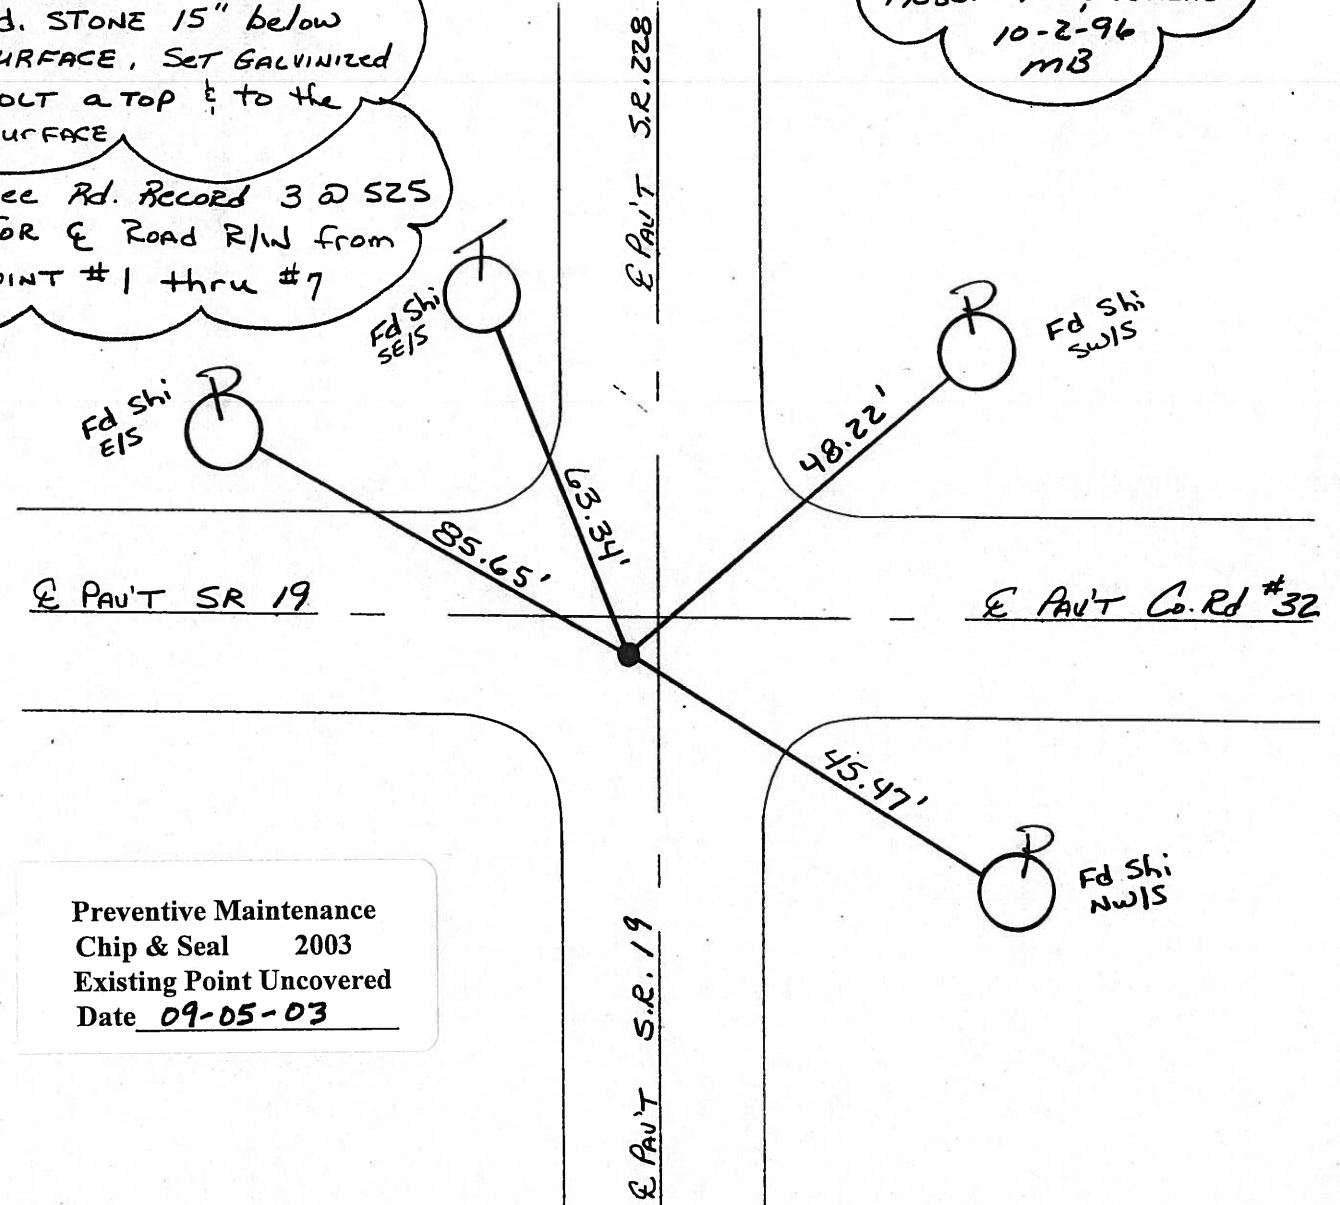 d. STONE 15" below
URFACE, SET GALVINIZED
OLT a TOP & to the
urFACE
ee Rd. Record 3 @ 525
OR ℄ ROAD R/W from
OINT #1 thru #7
10-2-96
mB
℄ PAV'T S.R. 228
T
Fd Shi
SE/S
P
Fd Shi
E/S
P
Fd Shi
SW/S
48.22'
63.34'
85.65'
℄ PAV'T SR 19
℄ PAV'T Co. Rd #32
45.47'
P
Fd Shi
NW/S
℄ PAV'T S.R. 19
Preventive Maintenance
Chip & Seal 2003
Existing Point Uncovered
Date 09-05-03